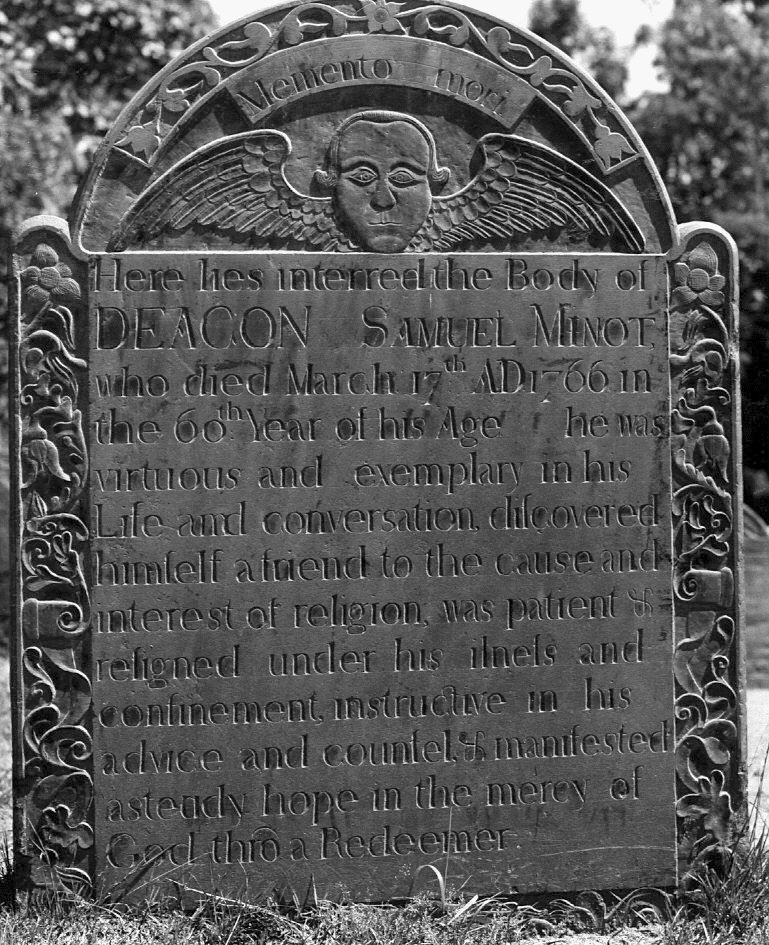 Memento mori
Here lies interred the Body of
DEACON SAMUEL MINOT,
who died March 17th AD 1766 in
the 60th Year of his Age he was
virtuous and exemplary in his
Life and converſation, diſcovered
himſelf a friend to the cause and
interest of religion, was patient &
reſigned under his ilneſs and
confinement, instructive in his
advice and counſel, & manifested
a steady hope in the mercy of
God thro a Redeemer.